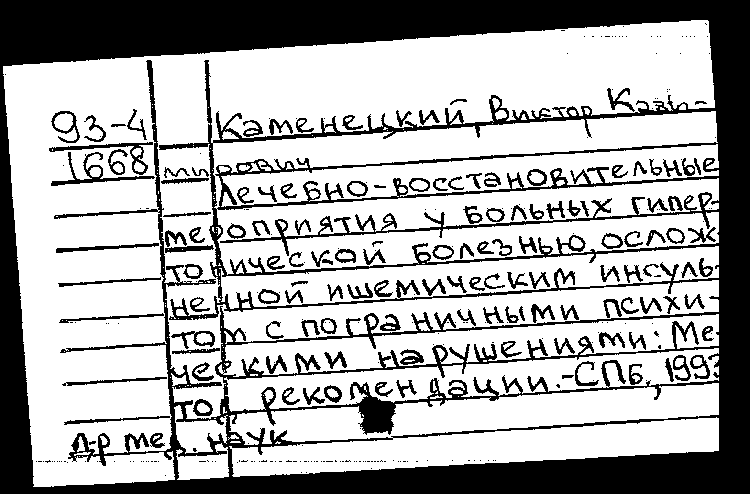 93-4 Каменецкий, Виктор Кази-
1668 мирович
Лечебно-восстановительные
мероприятия у больных гипер-
тонической болезнью, ослож-
ненной ишемическим инсуль-
том с пограничными психи-
ческими нарушениями: Ме-
тод. рекомендации.-СПб., 1993
д-р мед. наук